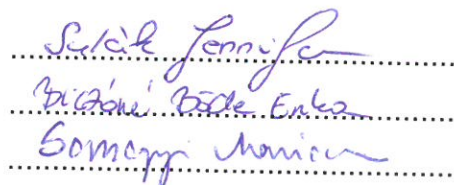 Sulák Jennifer
Biczóné Böde Enka
Somogyi Mariann